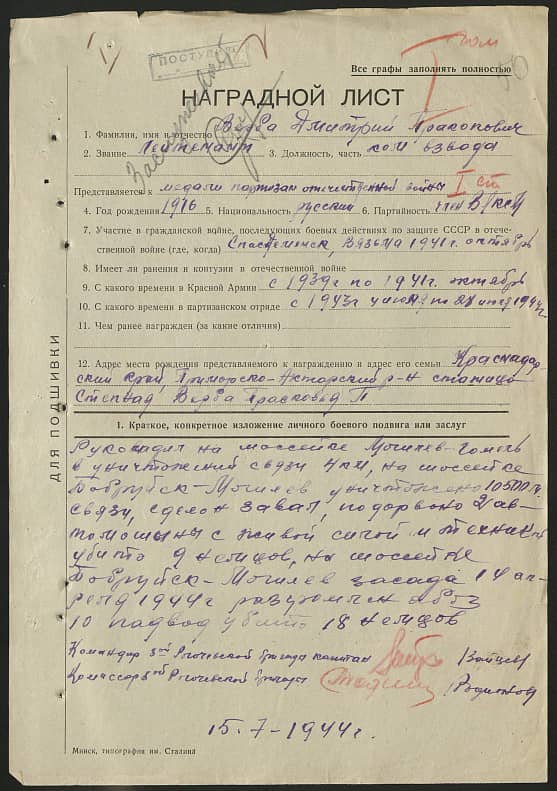 ПОСТУП
Все графы заполнять полностью
НАГРАДНОЙ ЛИСТ
1. Фамилия, имя и отчество Верба Дмитрий Пракопович
2. Звание Лейтенант 3. Должность, часть ком взвода
Представляется к медали партизан отечественной войны I ст
4. Год рождения 1916 5. Национальность русский 6. Партийность член ВКП
7. Участие в гражданской войне, последующих боевых действиях по защите СССР в отече-
ственной войне (где, когда) Спасдеменск, Вязьма 1941 г. октябрь
8. Имеет ли ранения и контузии в отечественной войне
9. С какого времени в Красной Армии с 1939г по 1941г. октябрь
10. С какого времени в партизанском отряде с 1943г по 1944г.
11. Чем ранее награжден (за какие отличия)
12. Адрес места рождения представляемого к награждению и адрес его семьи Краснадар
ский край, Приморско-Ахтарский р-н станица
Степвад Верба Прасковья П
ДЛЯ ПОДШИВКИ
1. Краткое, конкретное изложение личного боевого подвига или заслуг
на шоссейке Могилев-Гомель
связи на шоссейке
Бобруйск-Могилев уничтожено 10500
связи, сделан завал, подорвано 2 ав-
томашины с живой силой и техникой
убито 9 немцов, на шоссейке
Бобруйск-Могилев засада 14 ап-
реля 1944г разгромлен обоз
10 подвод убито 18 немцов
Командир бригады капитан
Комиссар бригады
15.7-1944г.
Минск, типография им. Сталина